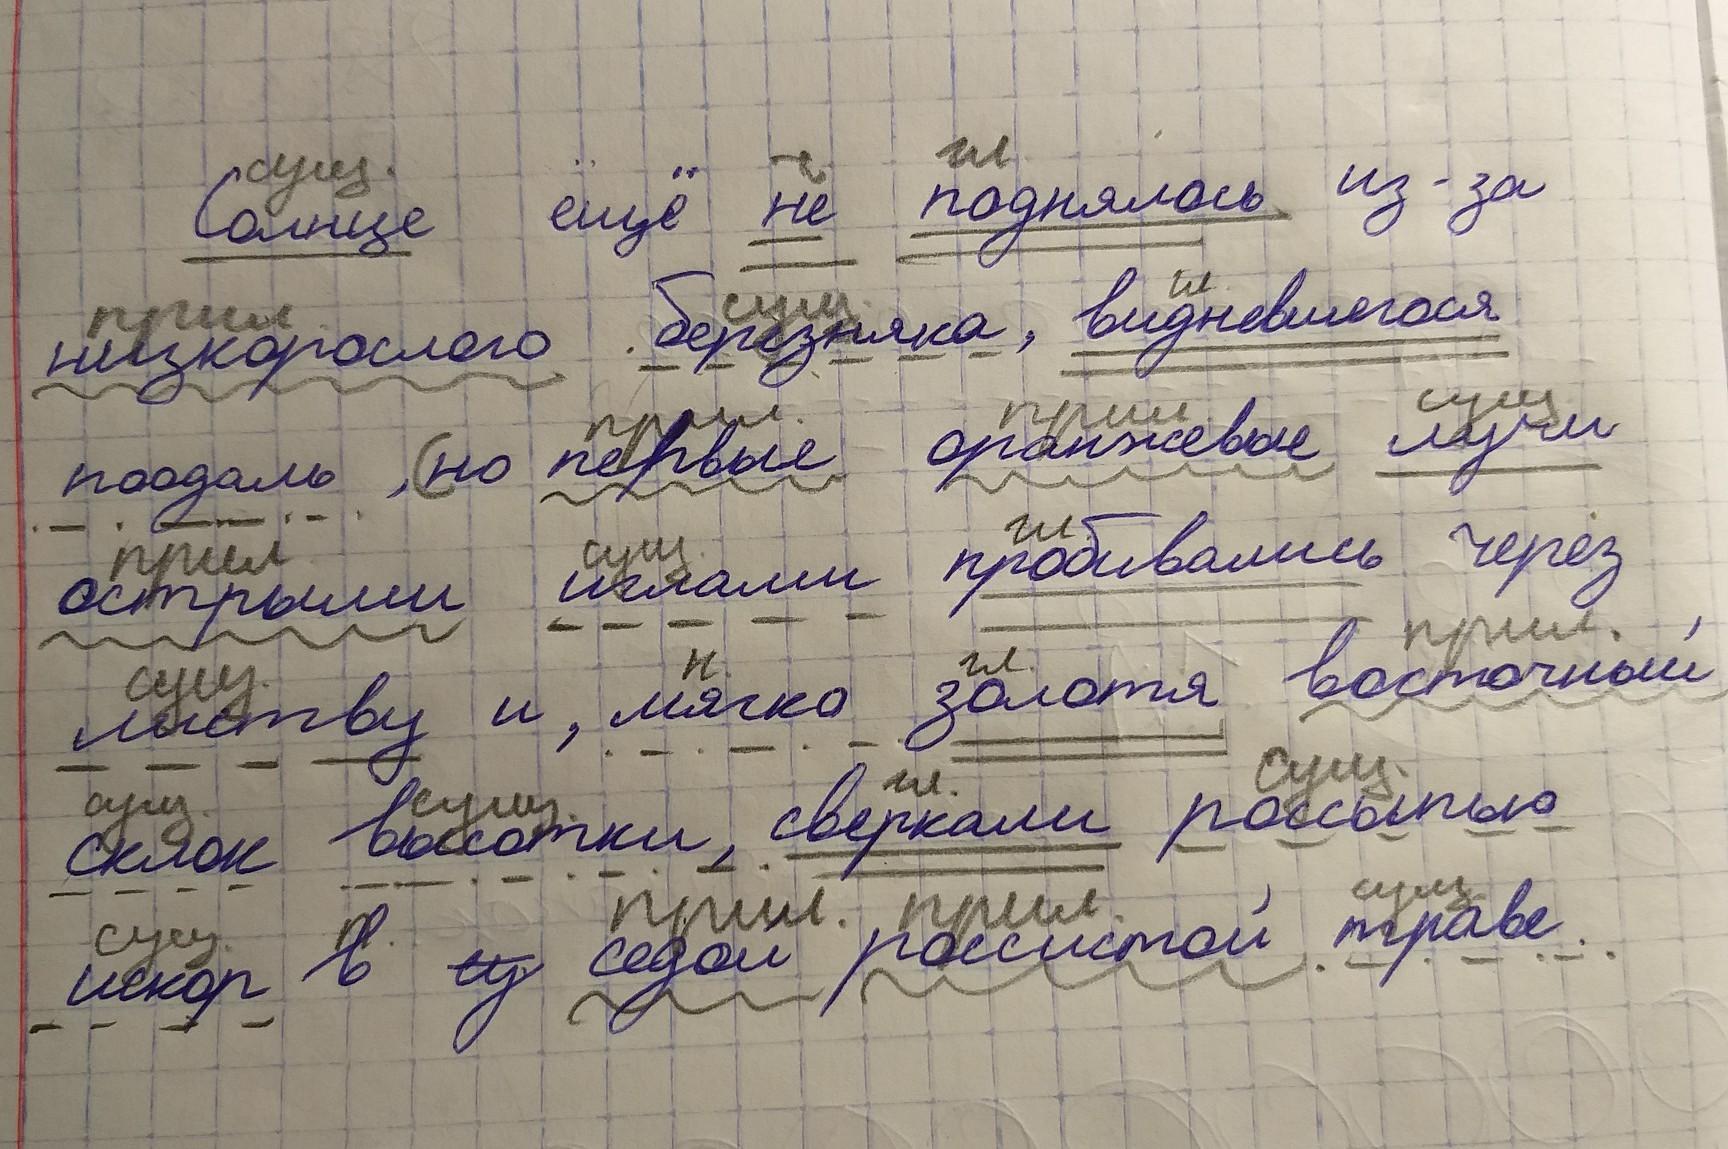 сущ. ч. гл.
Солнце ещё не поднялось из-за
прил. сущ. гл.
низкорослого березняка, видневшегося
прил. прил. сущ.
поодаль, но первые оранжевые лучи
прил сущ. гл.
острыми иглами пробивались через
сущ. н. гл. прил.
листву и, мягко золотя восточный
сущ. сущ. гл. сущ.
склон высотки, сверкали россыпью
сущ. п. прил. прил. сущ.
искор в седой россистой траве.